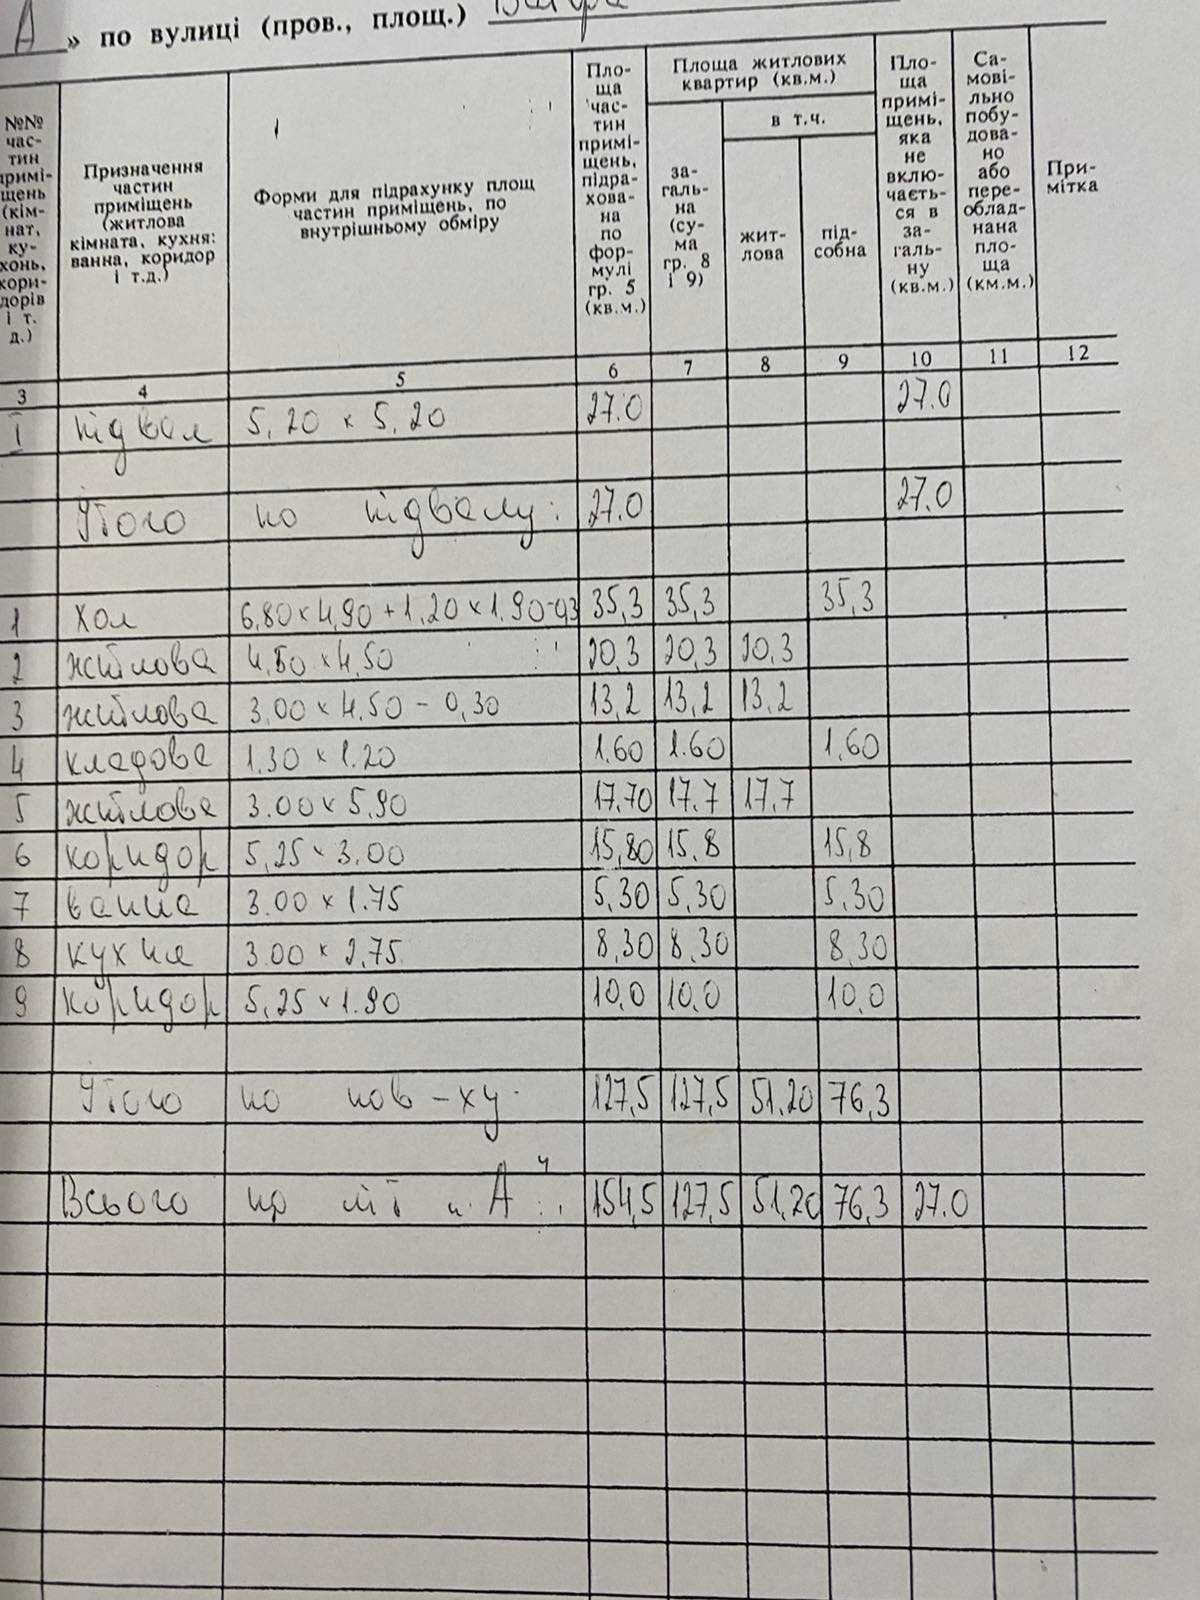 А » по вулиці (пров., площ.)
№№ час- тин примі- щень (кім- нат, ку- хонь, кори- дорів і т. д.)
Призначення частин приміщень (житлова кімната, кухня: ванна, коридор і т.д.)
Форми для підрахунку площ частин приміщень, по внутрішньому обміру
Пло- ща час- тин примі- щень, підра- хова- на по фор- мулі гр. 5 (кв.м.)
Площа житлових квартир (кв.м.)
за- галь- на (су- ма гр. 8 і 9)
в т.ч.
жит- лова
під- собна
Пло- ща примі- щень, яка не вклю- чаєть- ся в за- галь- ну (кв.м.)
Са- мові- льно побу- дова- но або пере- облад- нана пло- ща (км.м.)
При- мітка
3 4 5 6 7 8 9 10 11 12
I підвал 5,20 х 5,20 27.0 27.0
Ітого по підвалу: 27.0 27.0
1 хол 6,80х4,90+1,20х1.90-0,3 35,3 35,3 35,3
2 житлова 4,50х4,50 20,3 20,3 20,3
3 житлова 3.00х4.50-0,30 13,2 13,2 13,2
4 кладова 1.30х1.20 1.60 1.60 1,60
5 житлова 3.00х5,90 17.70 17.7 17,7
6 коридор 5,25х3.00 15,80 15,8 15,8
7 ванна 3.00х1.75 5,30 5,30 5,30
8 кухня 3.00х2,75 8,30 8,30 8,30
9 коридор 5,25х1.90 10,0 10,0 10,0
Ітого по пов-ху. 127,5 127,5 51,20 76,3
Всього по літ "А": 154,5 127,5 51,20 76,3 27.0